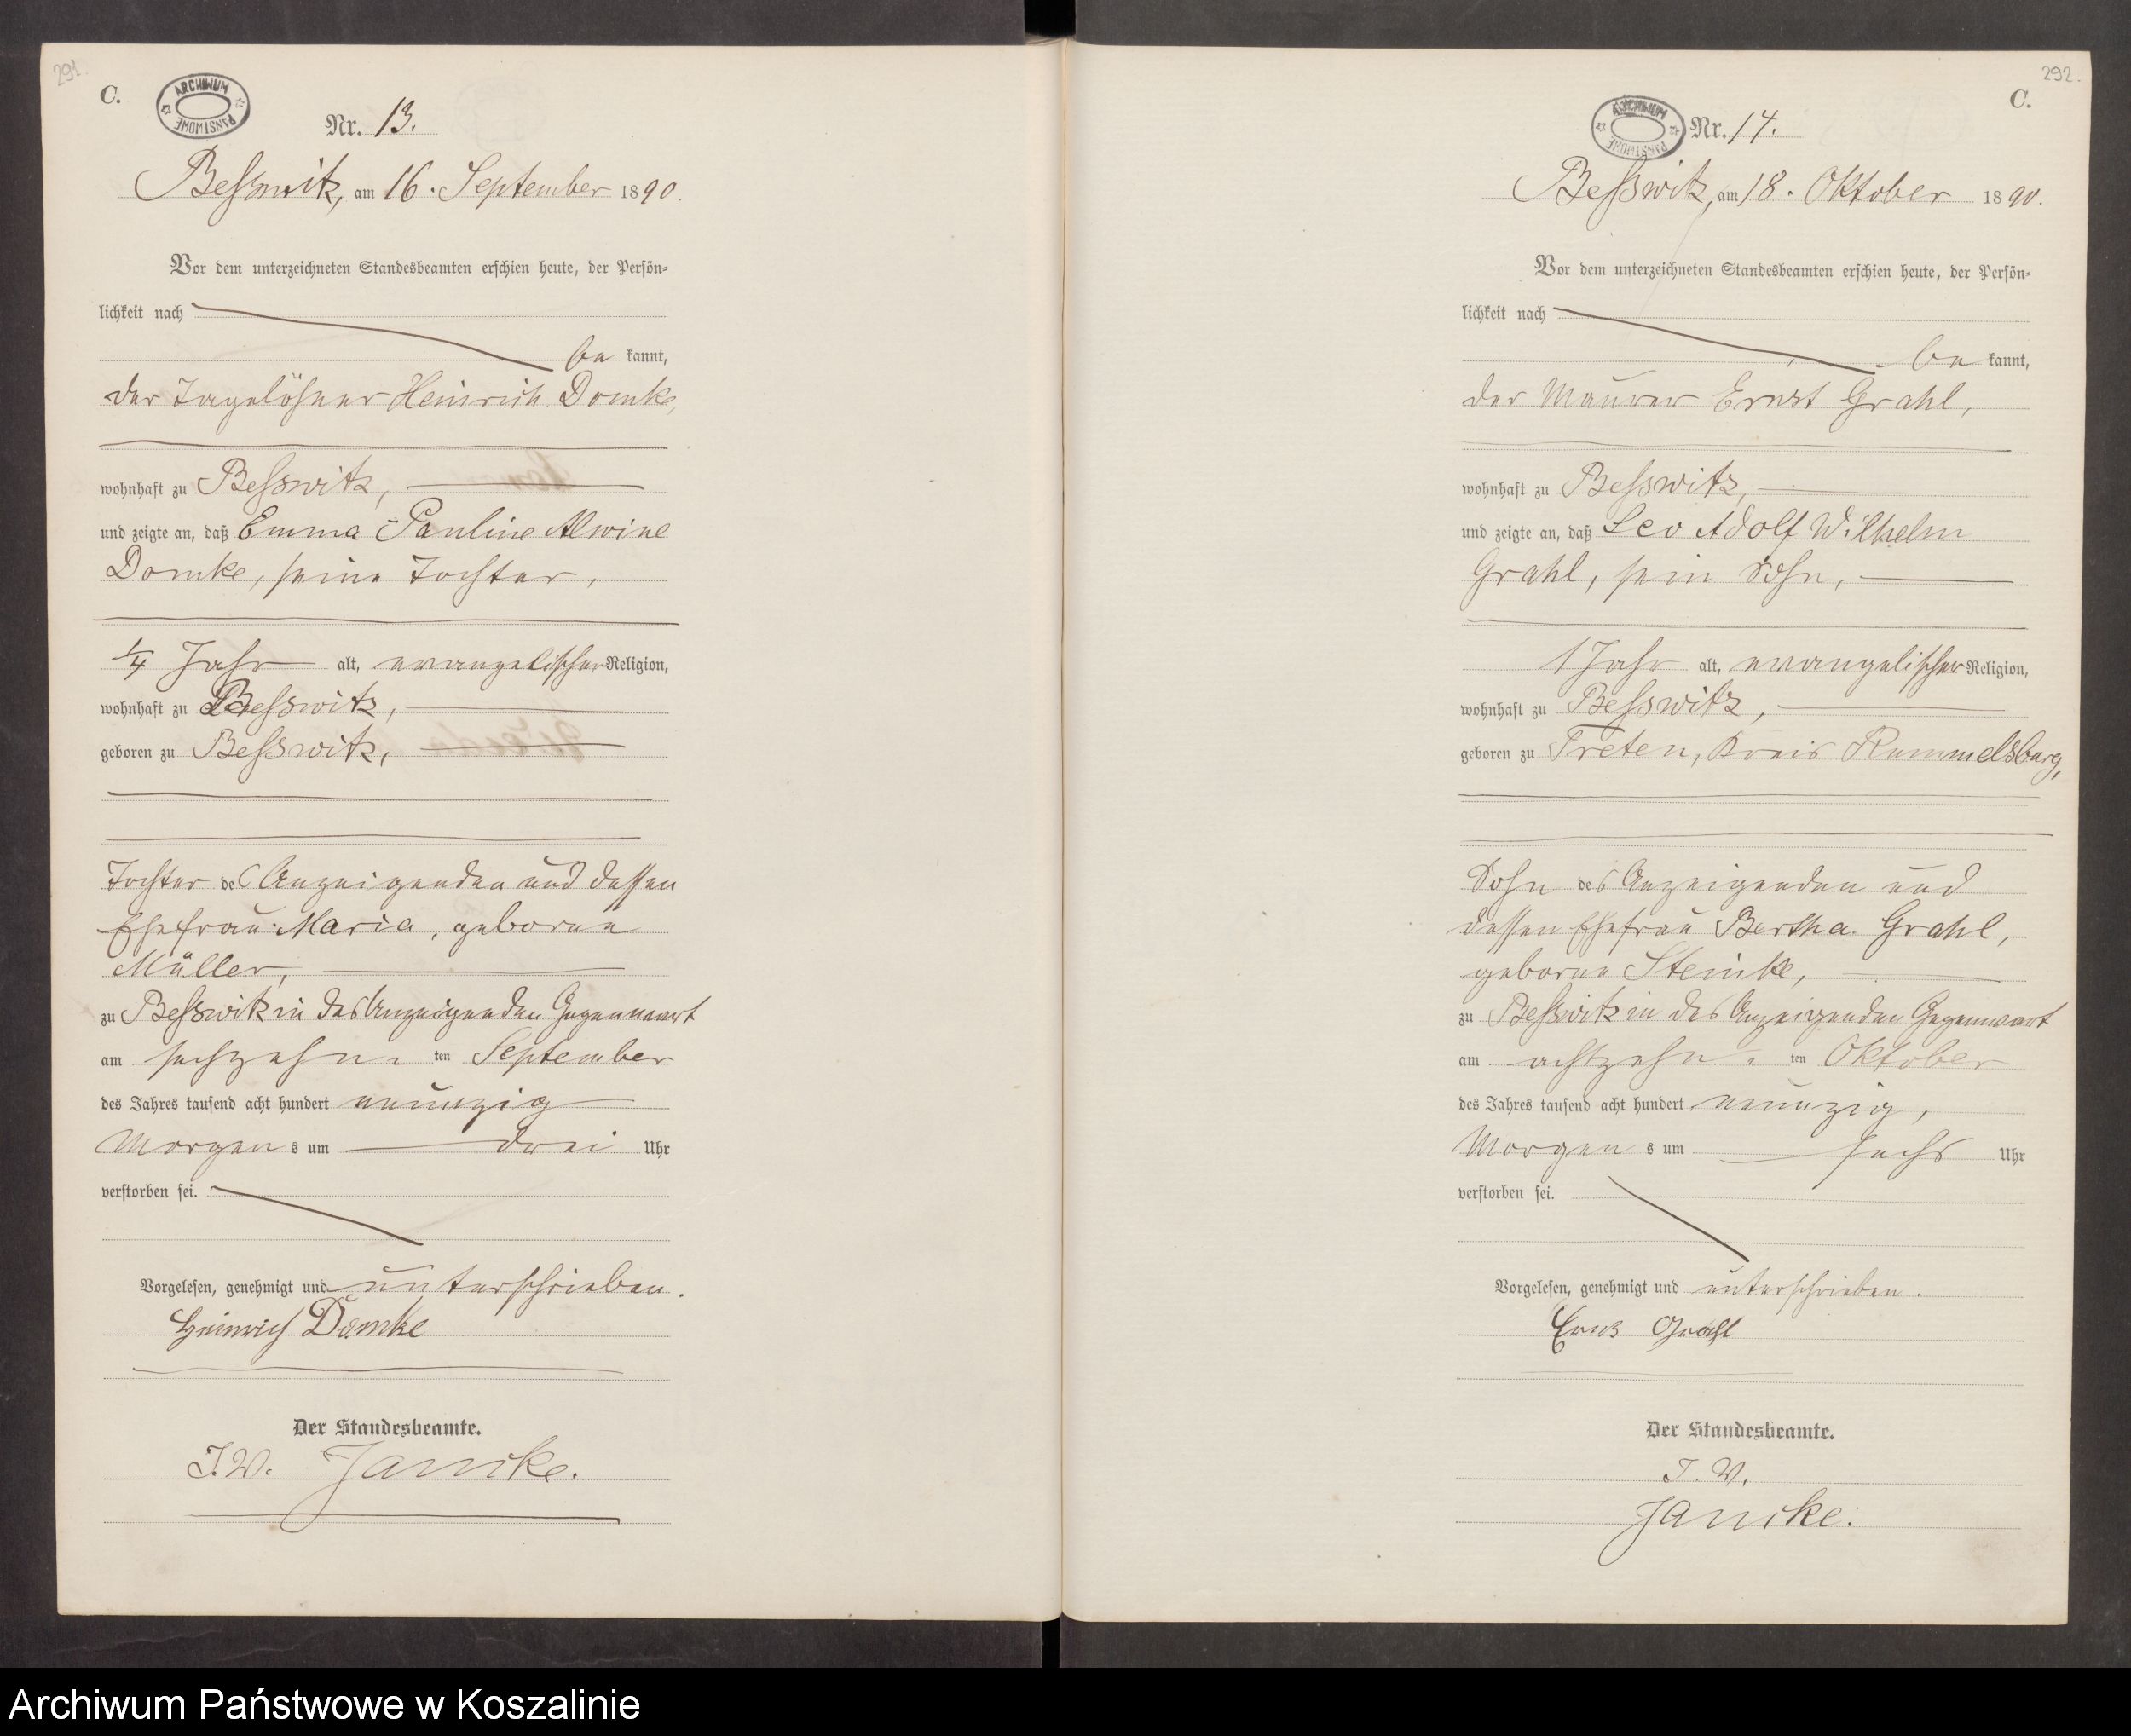 291.
C.
ARCHIWUM PAŃSTWOWE
Nr. 13.
Beßwitz, am 16. September 1890.
Vor dem unterzeichneten Standesbeamten erschien heute, der Persön-
lichkeit nach
be kannt,
der Tagelöhner Heinrich Domke,
wohnhaft zu Besswitz,
und zeigte an, daß Emma Pauline Alwine
Domke, seine Tochter,
1/4 Jahr alt, evangelischer Religion,
wohnhaft zu Besswitz,
geboren zu Besswitz,
Tochter des Anzeigenden und dessen
Ehefrau Maria, geborne
Müller,
zu Besswitz in des Anzeigenden Gegenwart
am sechzehn ten September
des Jahres tausend acht hundert neunzig
Morgen s um drei Uhr
verstorben sei.
Vorgelesen, genehmigt und unterschrieben.
Heinrich Domke
Der Standesbeamte.
I. V. Jancke.
292.
C.
ARCHIWUM PAŃSTWOWE
Nr. 14.
Besswitz, am 18. Oktober 1890.
Vor dem unterzeichneten Standesbeamten erschien heute, der Persön-
lichkeit nach
be kannt,
der Maurer Ernst Grahl,
wohnhaft zu Besswitz,
und zeigte an, daß Leo Adolf Wilhelm
Grahl, sein Sohn,
1 Jahr alt, evangelischer Religion,
wohnhaft zu Besswitz,
geboren zu Treten, Kreis Rummelsburg,
Sohn des Anzeigenden und
dessen Ehefrau Bertha Grahl,
geborne Steinke,
zu Besswitz in des Anzeigenden Gegenwart
am achtzehn ten Oktober
des Jahres tausend acht hundert neunzig,
Morgen s um sechs Uhr
verstorben sei.
Vorgelesen, genehmigt und unterschrieben.
Ernst Grahl
Der Standesbeamte.
I. V.
Jancke.
Archiwum Państwowe w Koszalinie